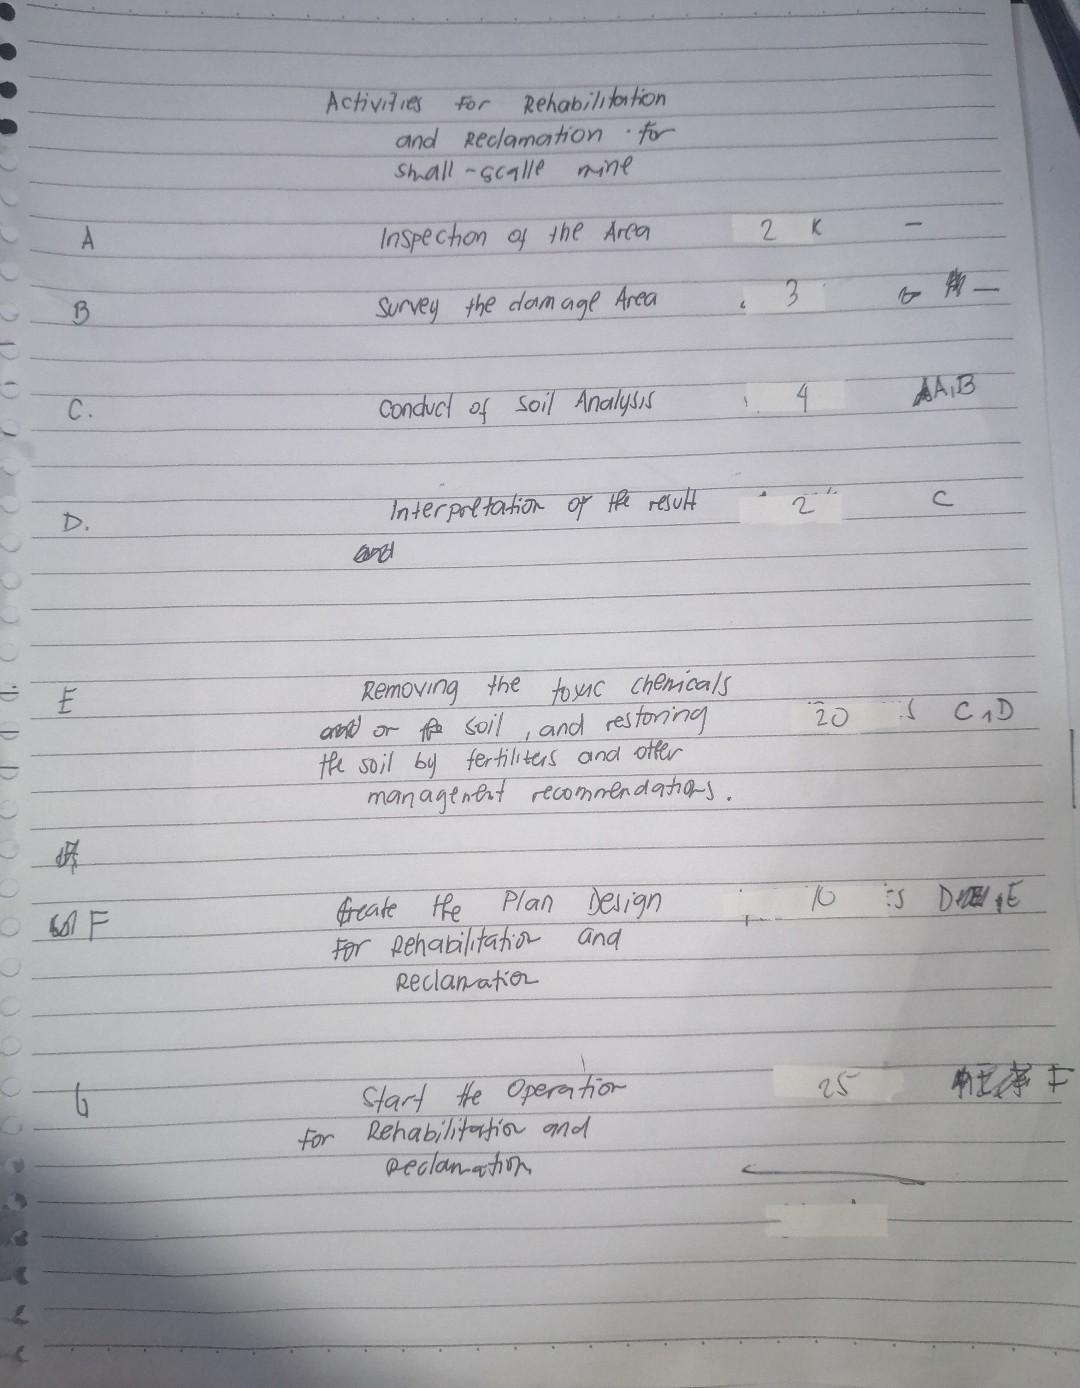 Activities for Rehabilitation
and Reclamation for
small-scalle mine
A Inspection of the Area 2 K –
B Survey the damage Area 3 –
C. Conduct of Soil Analysis 4 A,B
D. Interpretation of the result 2 C
E Removing the toxic chemicals
or the soil, and restoring 20 s C,D
the soil by fertiliters and other
management recommendations.
F Create the Plan Design 10 s D,E
For Rehabilitation and
Reclamation
G Start the Operation 25 F
For Rehabilitation and
Reclamation